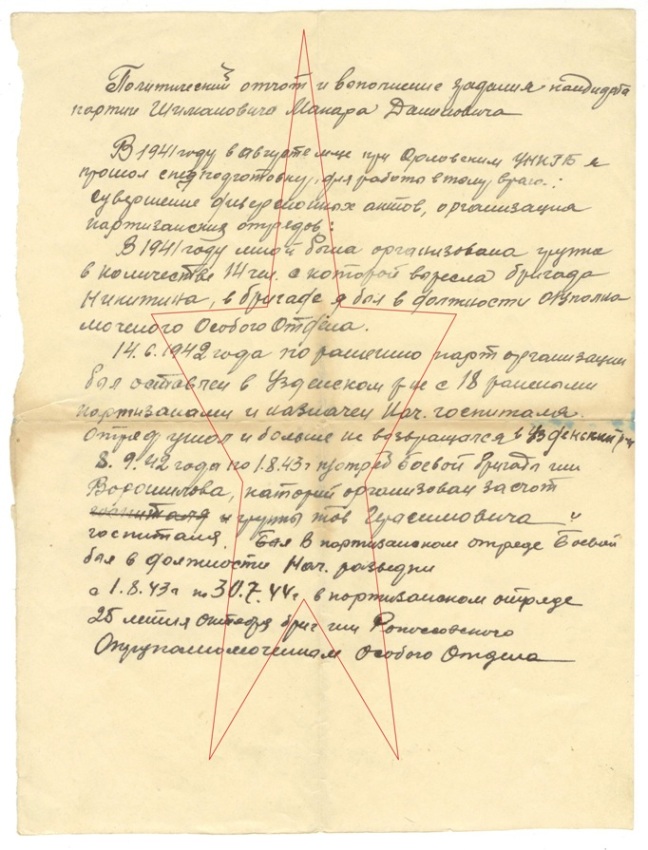 Политический отчот и вополнение задания кандидата
партии Шимановича Макара Даниловича
В 1941 году в августе м-це при Орловским УНКГБ я
прошол спецподготовку, для работы в тылу врага:
Сувершение диверсионных актов, организация
партизанских отредов:
В 1941 году мной была организована група
в количестве 14 чел. с которой воресла бригада
Никитина, в бригаде я бол в должности
Особого Отдела.
14.6.1942 года по рашению парт организации
бол оставлен в Узденском р-не с 18 раненыма
портизанами и назначен Нач. госпиталя.
Отряд ушол и больше не возвращался в Узденский р-н
8.9.42 года по 1.8.43 г Боевой бригада им
Ворошилова, каторий организован за счот
группы тов Герасимовича "
госпиталя. Бол в портизанском отреде Боевой
бол в должности Нач. разведки
с 1.8.43 г по 30.7.44 г. в портизанском отряде
25 летия октября бриг им Рокосовского
Особого Отдела